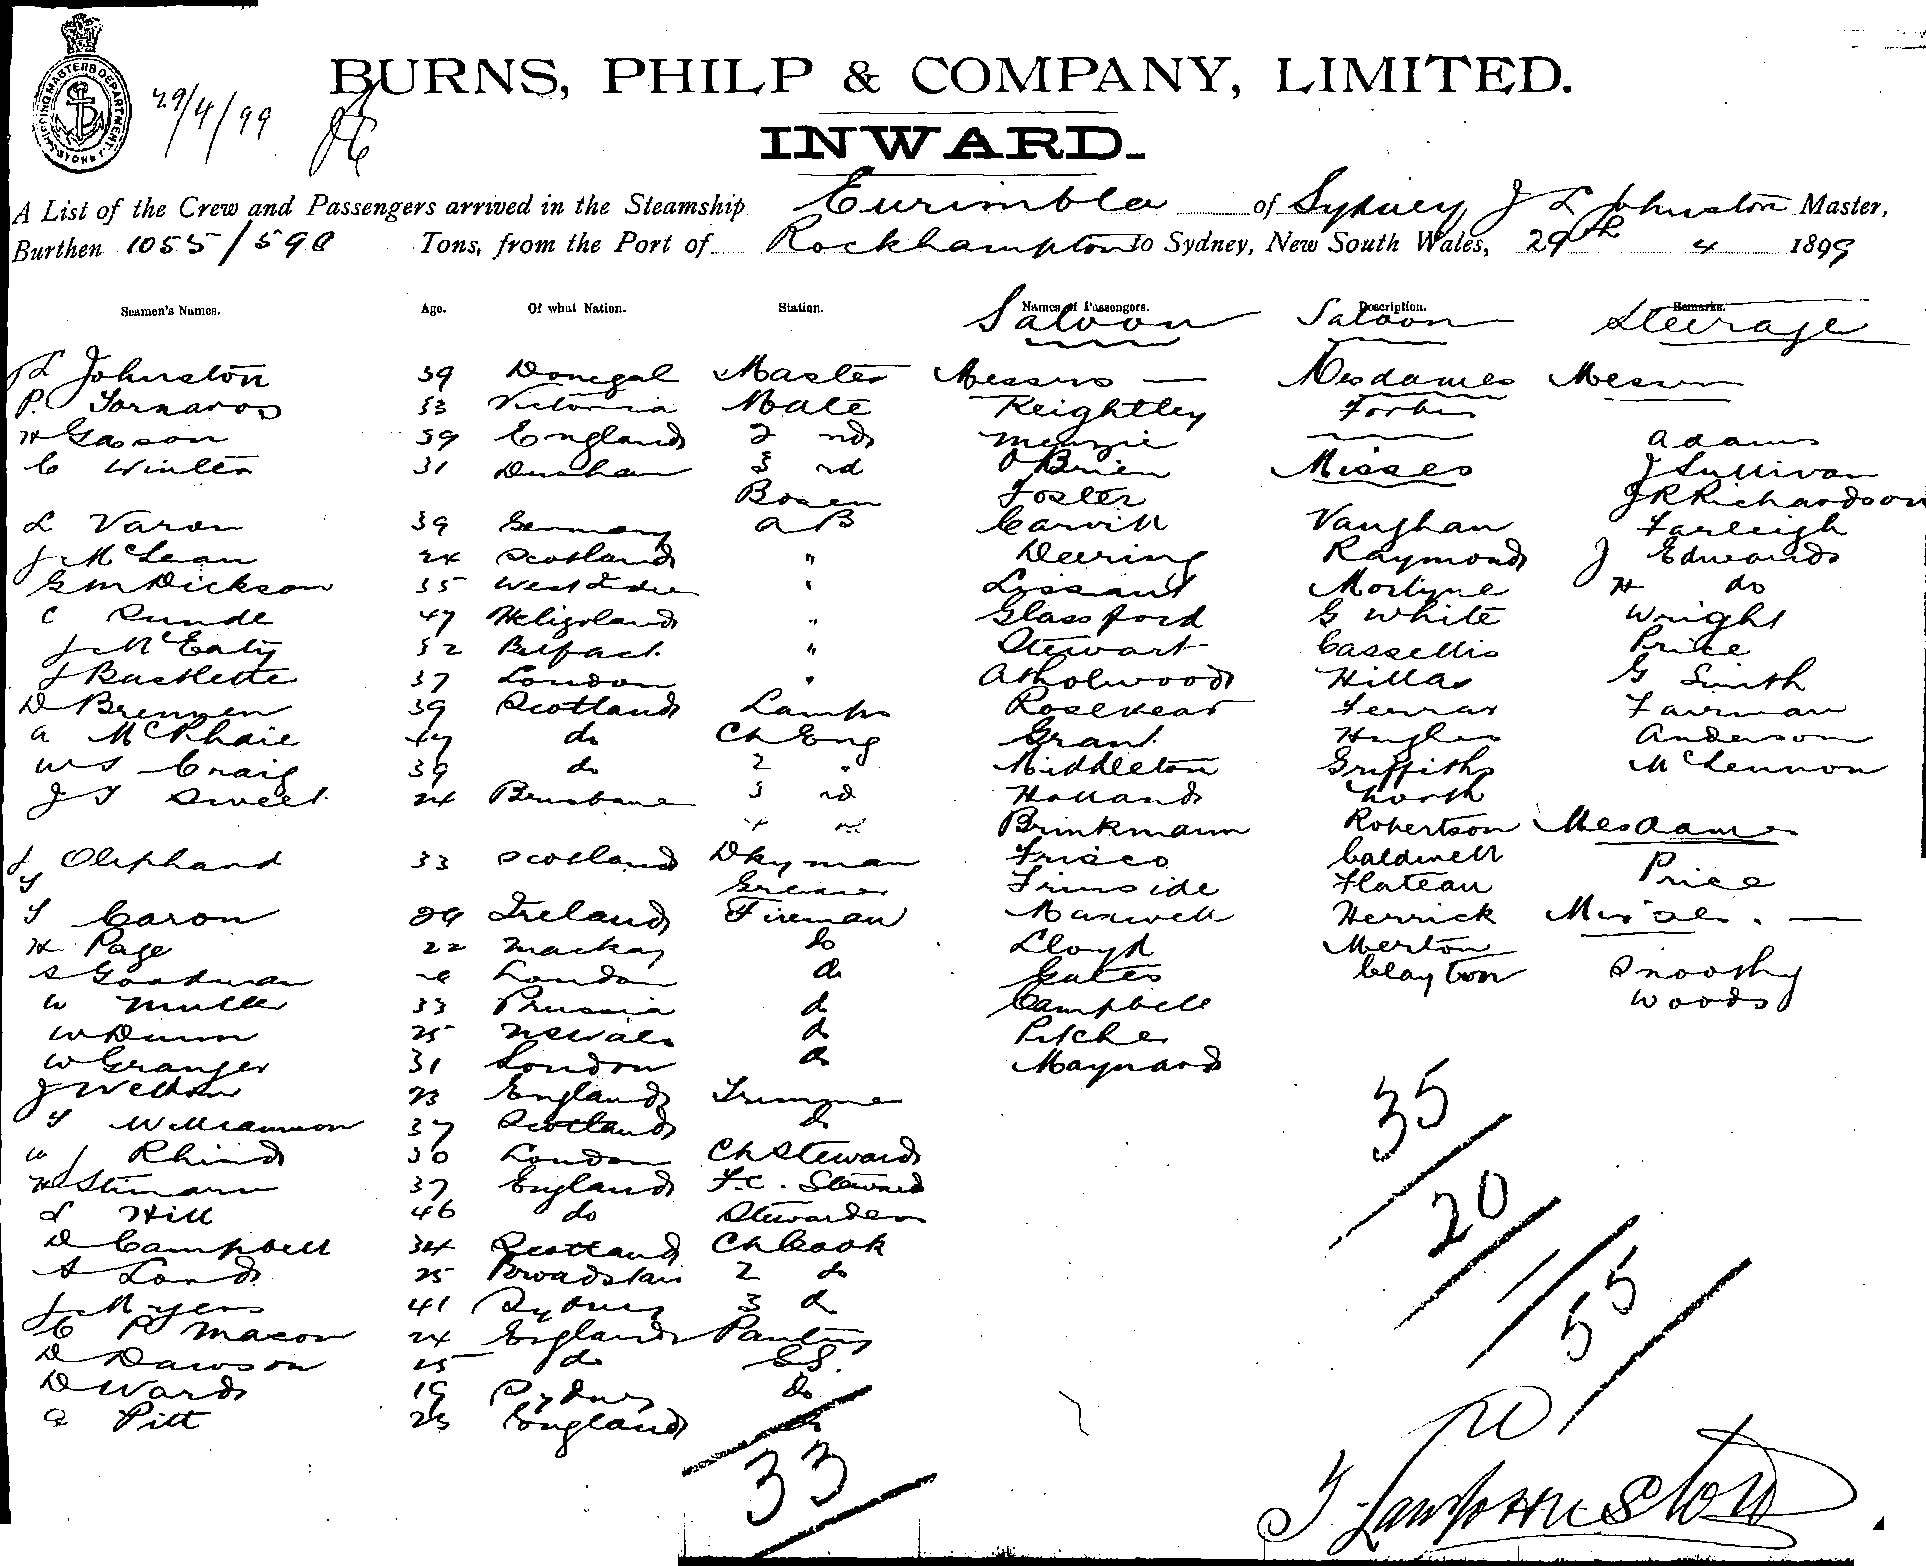 SHIPPING MASTERS DEPARTMENT SYDNEY
29/4/99
BURNS, PHILP & COMPANY, LIMITED.
INWARD.
A List of the Crew and Passengers arrived in the Steamship Eurimbla of Sydney, J L Johnston Master,
Burthen 1055/590 Tons, from the Port of Rockhampton to Sydney, New South Wales, 29th 4 1899
Seamen's Names. Age. Of what Nation. Station. Names of Passengers. Description. Remarks.
Saloon Saloon Steerage
L Johnston 39 Donegal Master Messrs — Mesdames Messrs
P. 33 Victoria Mate Keightley Forbes
H Gasson 39 England 2 nd Menzie Adams
C Winter 31 Durham 3 rd O'Brien Misses J Sullivan
Bosen Foster J R Richardson
L Varon 39 Germany A B Carvill Vaughan Farleigh
J McLean 24 Scotland " Deering Raymond J Edwards
G M Dickson 35 West Indies " Lissant Mostyne H do
C Sunde 47 Heligoland " Glassford G White Wright
J McCaty 52 Belfast " Stewart Cassellis Price
J 37 London " Atholwood Hillas G Smith
D Brennen 39 Scotland Lamps Rosevear Ferrar Fairman
A McPhaie 47 do Ch Eng Grant Hughes Anderson
W S Craig 39 do 2 " Middleton Griffiths McLennon
J T Sweet 24 Brisbane 3 rd Holland North
4 Brinkmann Robertson Mesdames
J Oliphand 33 Scotland Dkyman Frisco Caldwell Price
Greaser Flateau
T Caron 29 Ireland Fireman Maxwell Herrick Misses. —
H Page 22 Mackay do Lloyd Merton
S Goodman London do Gates Clayton Smoothy
W Muller 33 Prussia do Campbell Woods
W Dunn 25 N S Wales do Pitcher
W Granger 31 London do Maynard
J Welton 23 England Trimmer
T Williamson 37 Scotland do
W Rhind 30 London Ch Steward
H Stimann 37 England F.C. Steward
L Hill 46 do Stewardess
D Campbell 34 Scotland Ch Cook
A Lond 25 Broadstairs 2 do
J Myers 41 Sydney 3 do
C P Mason 24 England Pantry
D Dawson 25 do G S.
D Ward 19 Sydney do
A Pitt 23 England do
33
35
20
55